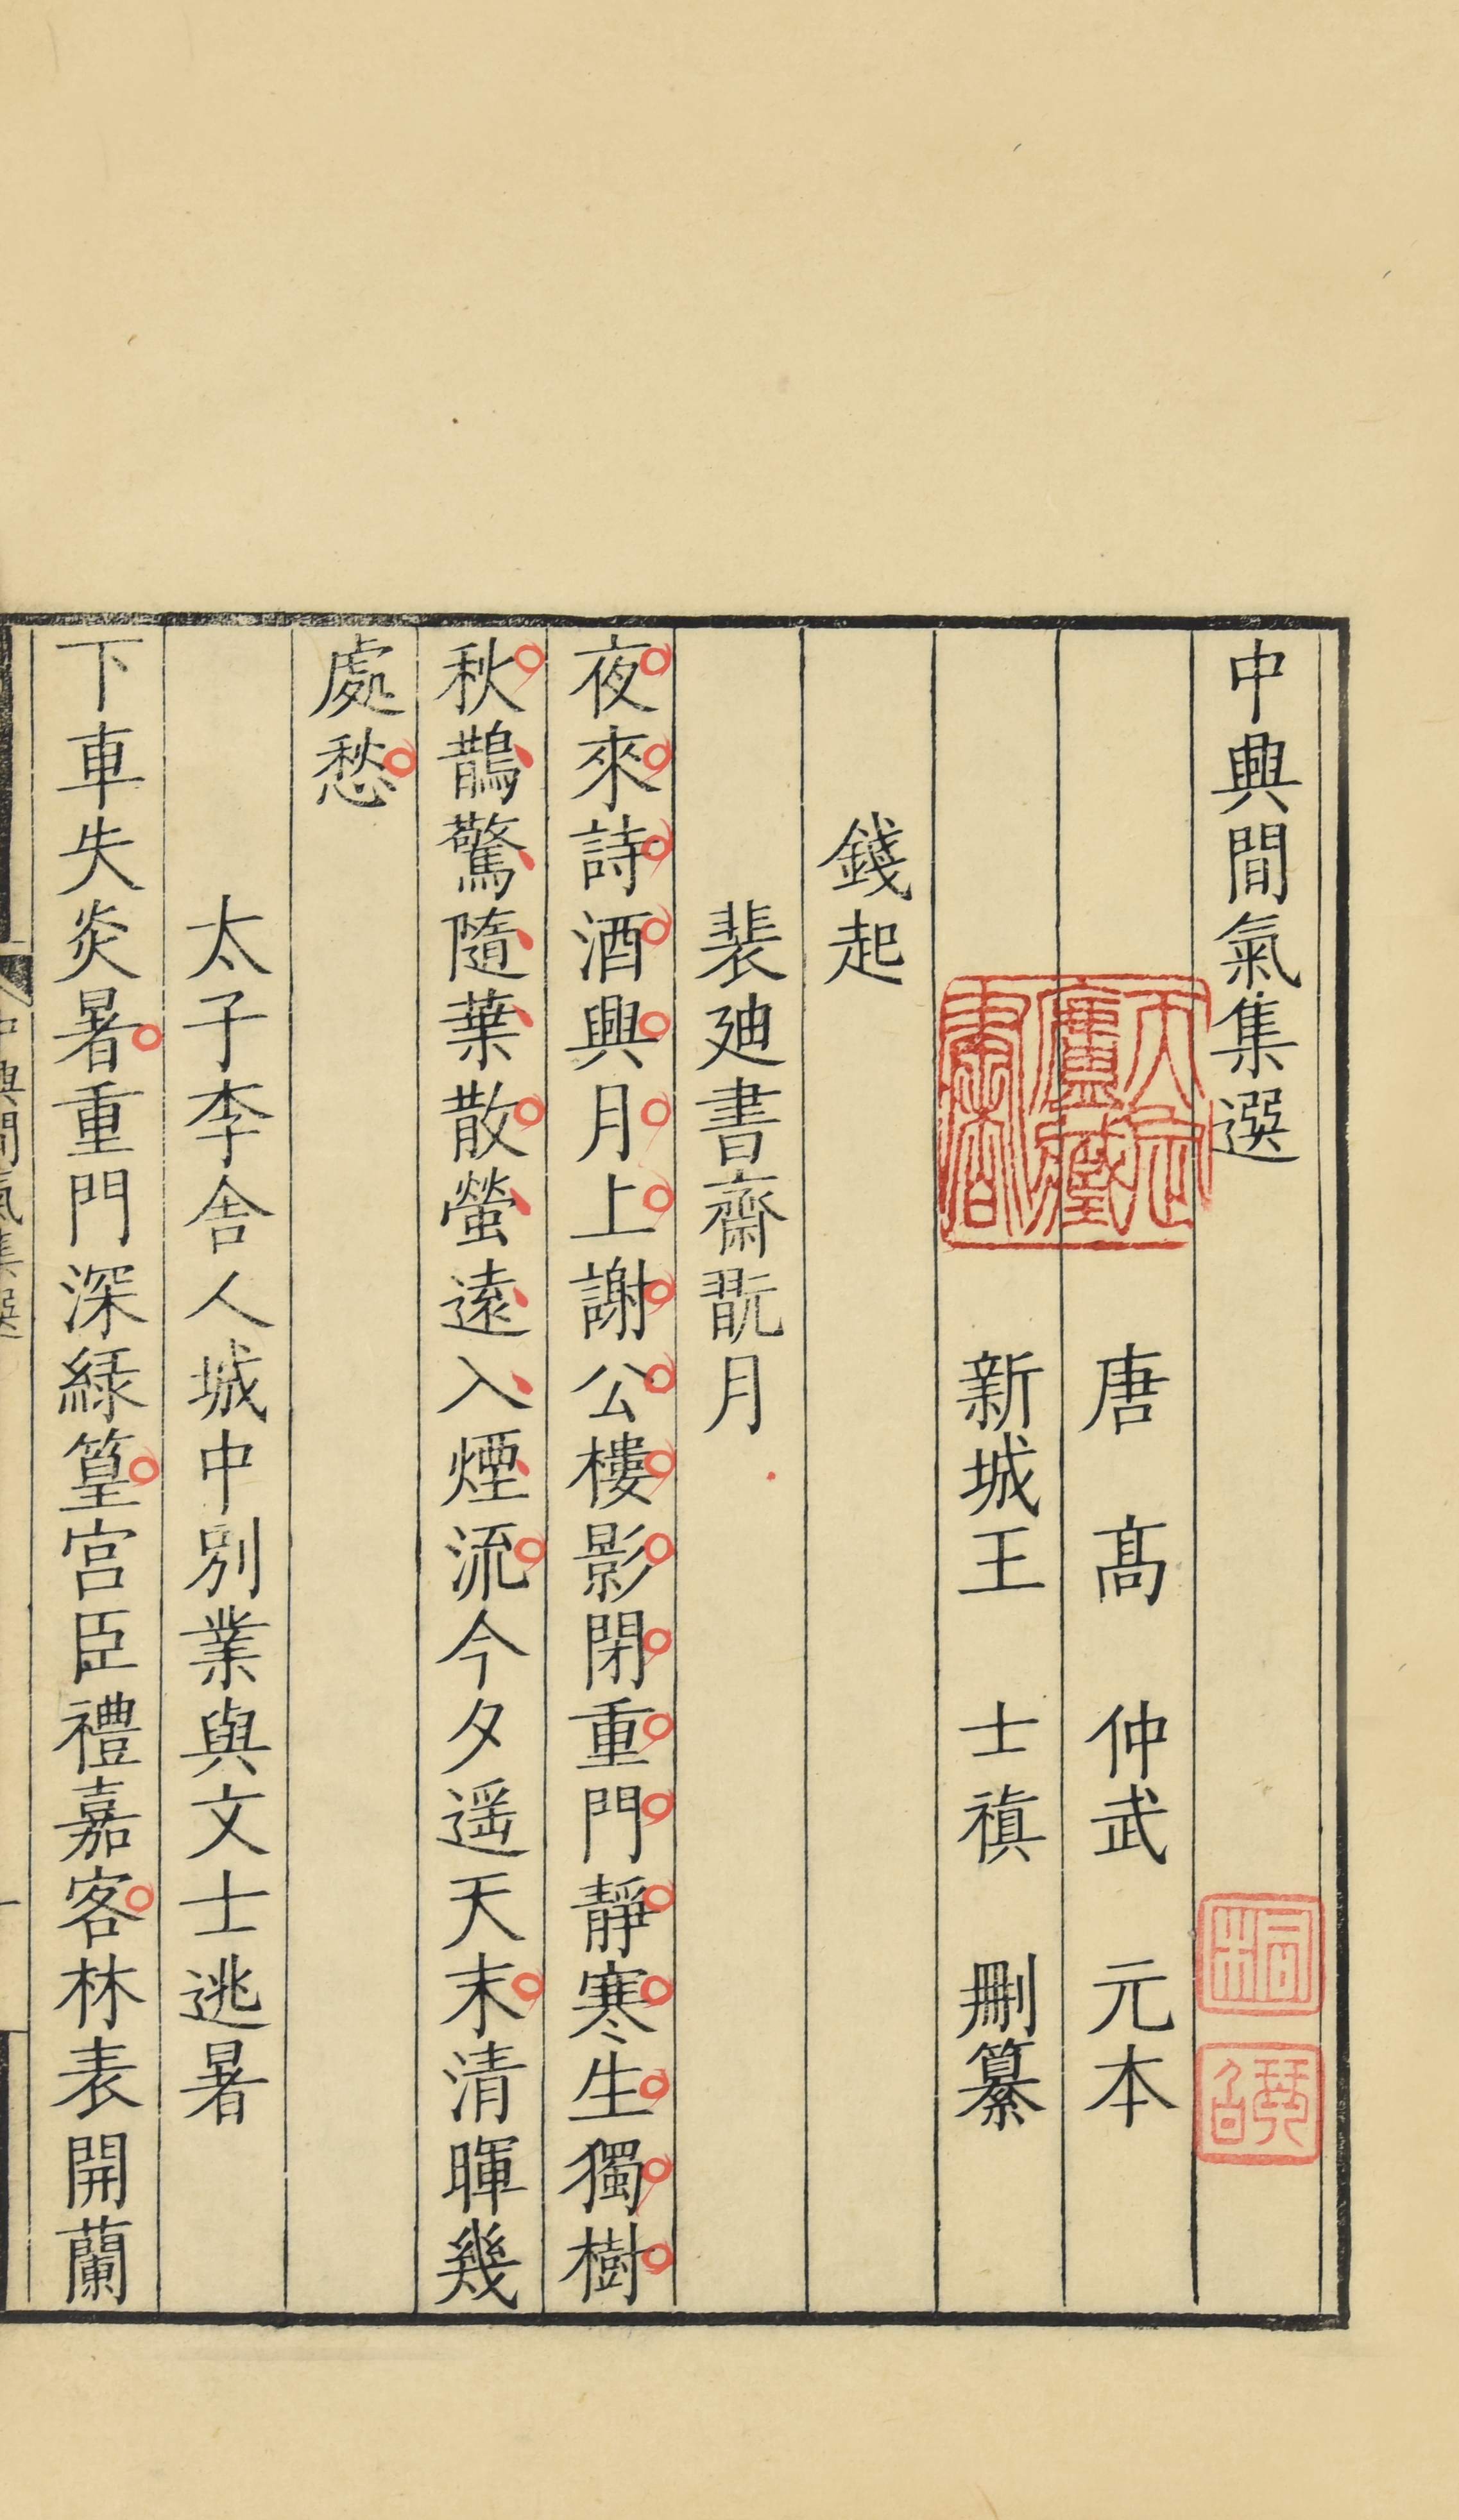 中興閒氣集選
唐 髙 仲武 元本
新城王 士禛 刪纂
錢起
裴廸書齋翫月
夜來詩酒興月上謝公樓影閉重門靜寒生獨樹
秋鵲驚隨葉散螢遠入煙流今夕遥天末清暉幾
處愁
太子李舎人城中別業與文士逃暑
下車失炎暑重門深緑篁宮臣禮嘉客林表開蘭
中興閒氣集選